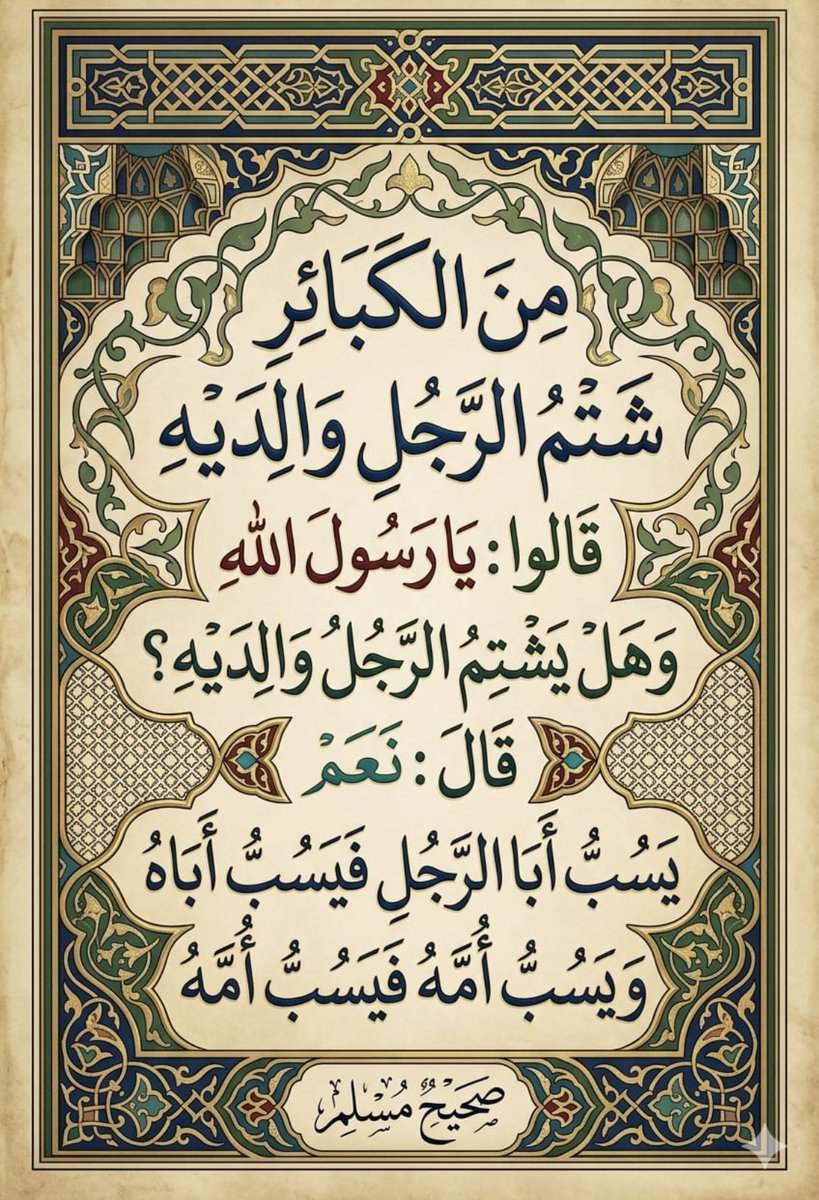 مِنَ الكَبَائِرِ
شَتْمُ الرَّجُلِ وَالِدَيْهِ
قَالُوا: يَا رَسُولَ اللهِ
وَهَلْ يَشْتِمُ الرَّجُلُ وَالِدَيْهِ؟
قَالَ: نَعَمْ
يَسُبُّ أَبَا الرَّجُلِ فَيَسُبُّ أَبَاهُ
وَيَسُبُّ أُمَّهُ فَيَسُبُّ أُمَّهُ
صَحَيْحٌ مُسْلِمِ